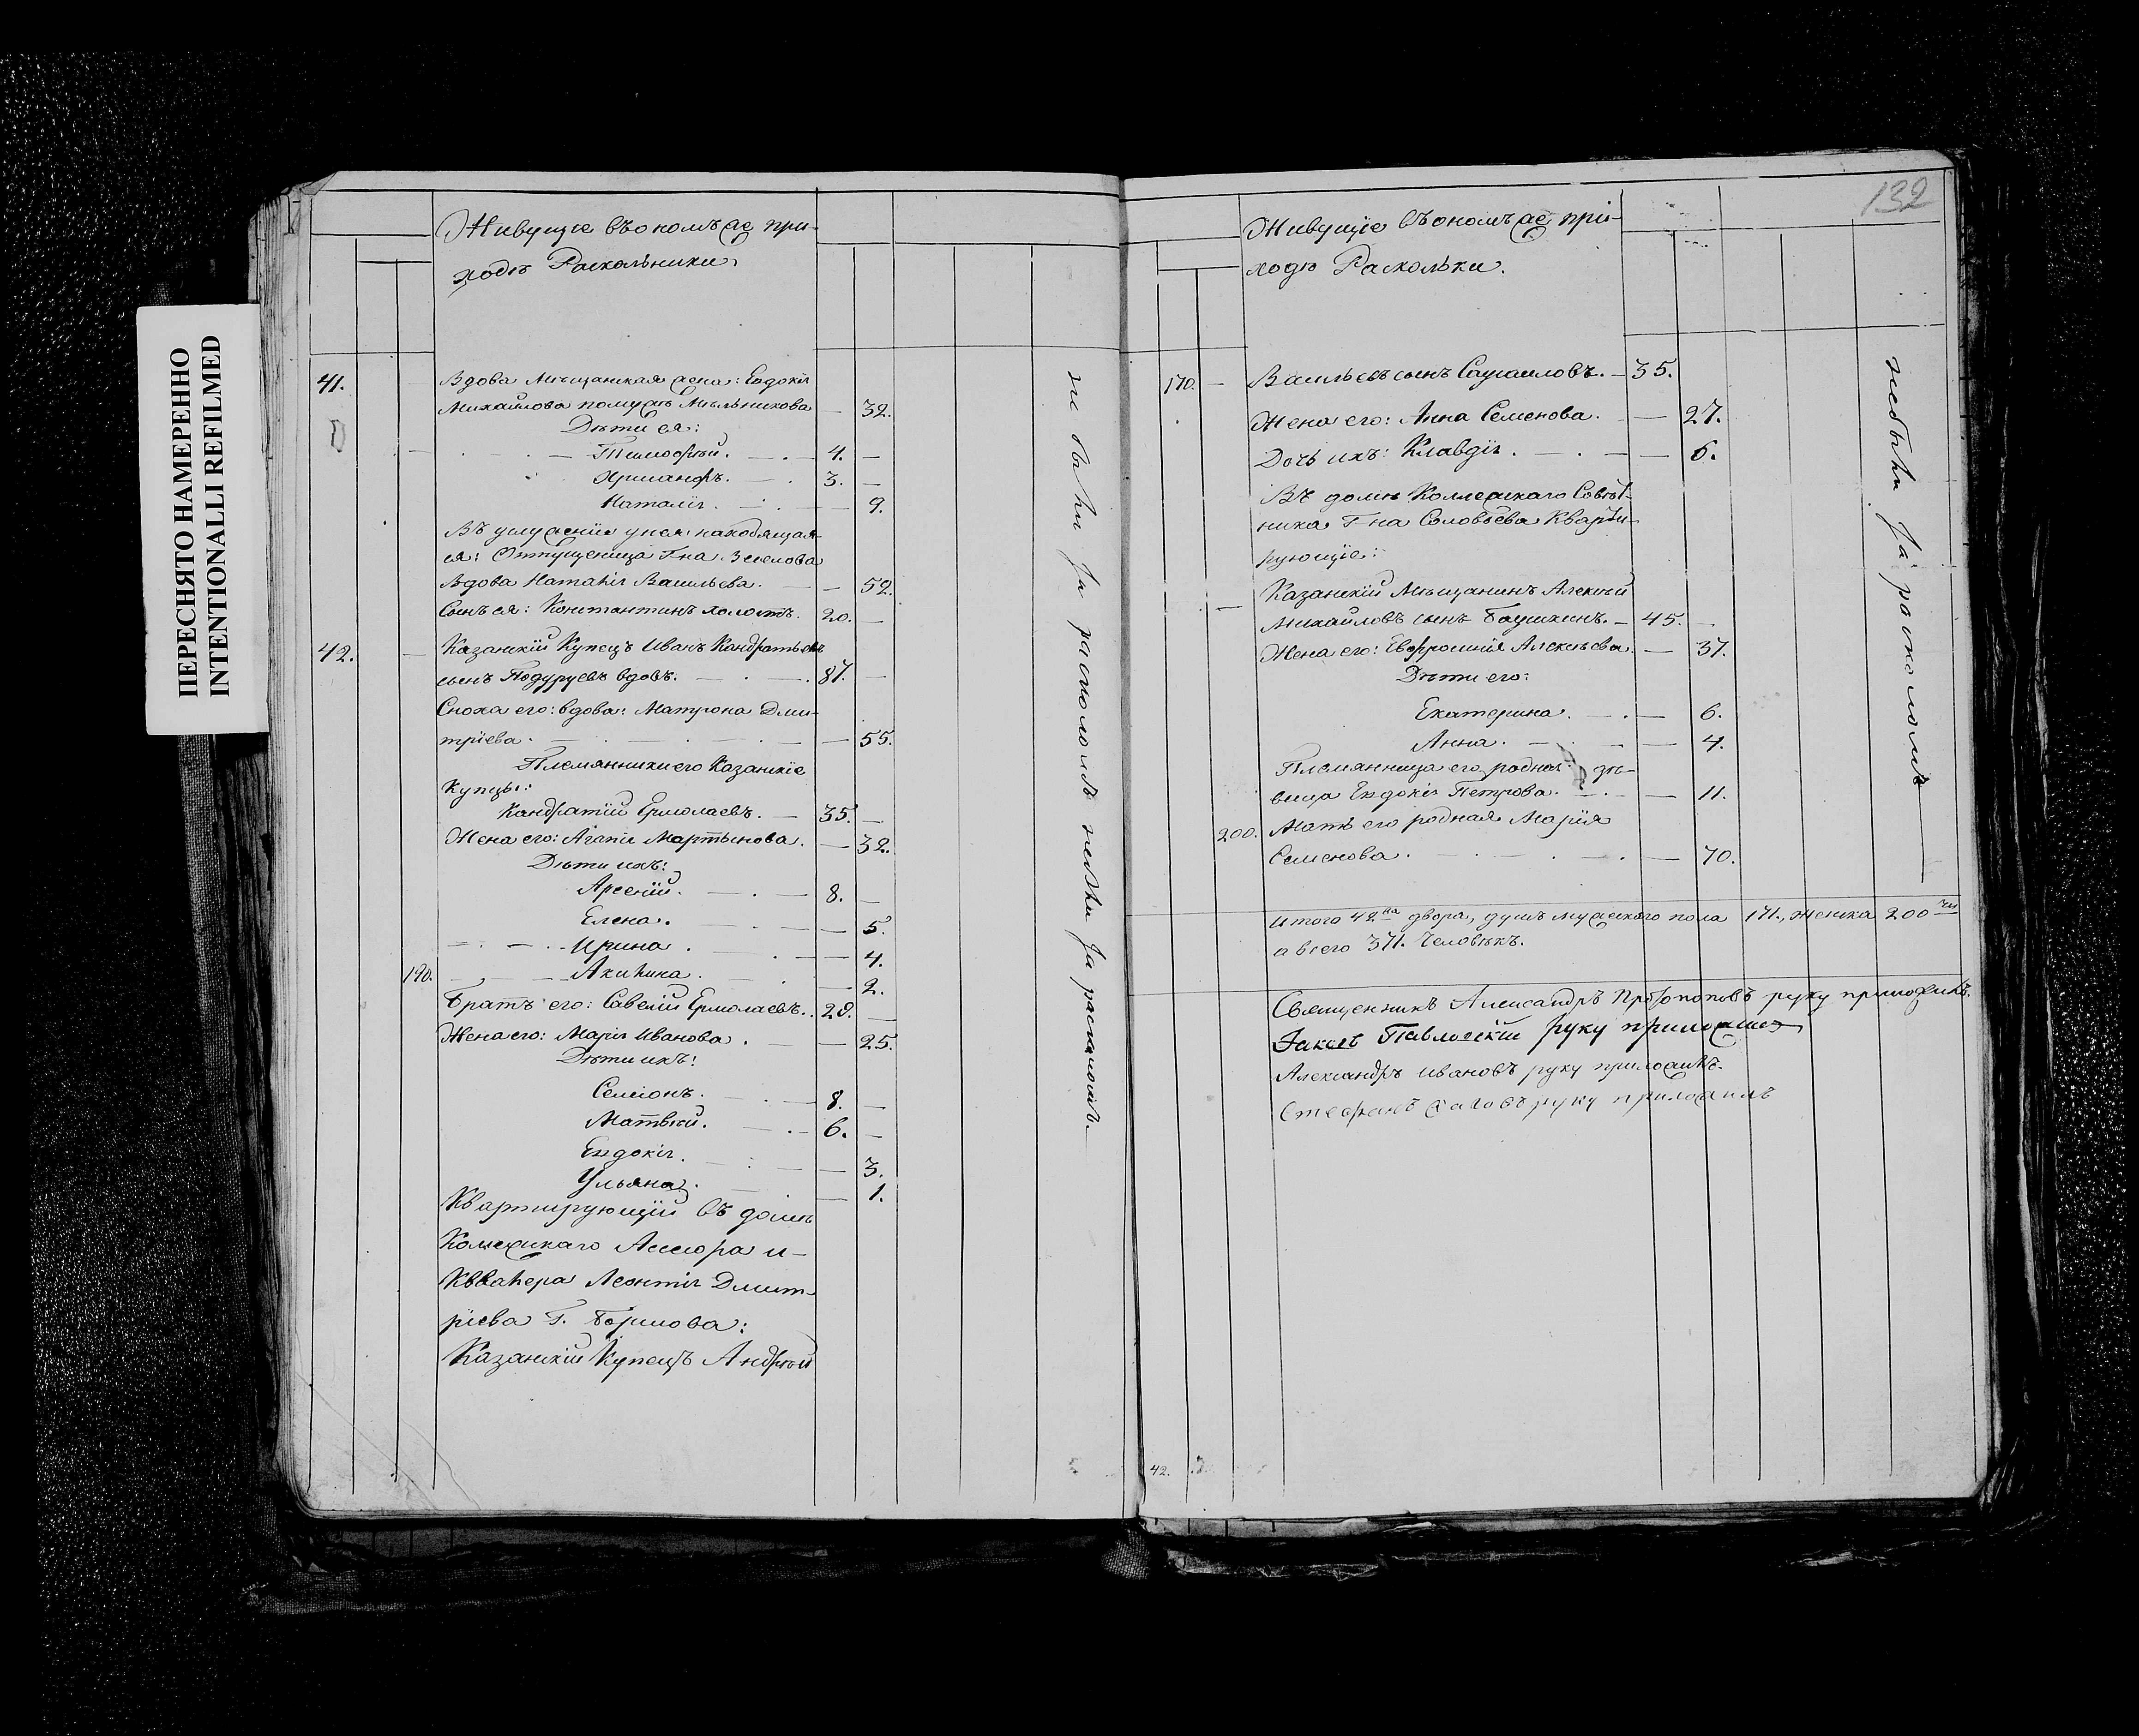 ПЕРЕСНЯТО НАМЕРЕННО
INTENTIONALLI REFILMED
Живущіе въ ономъ же при-
ходѣ Раскольники.
41.
Вдова Мѣщанская жена: Евдокія
Михайлова по мужѣ Мѣльникова — 32.
Дѣти ея:
Тимофѣй. 4. —
Хрисанфъ. 3. —
Наталія. 9.
Въ услуженіи у нея находящая-
ся: Отпущеница Г-на
Вдова Наталія Васильева. — 52.
Сынъ ея: Константинъ холостъ. 20. —
42. Казанскій Купецъ Иванъ Кандратьевъ
сынъ Подуруевъ вдовъ. 87. —
Сноха его: вдова: Матрона Дми-
тріева. — 55.
Племянники его Казанскіе
Купцы:
Кандратій Ермолаевъ. — 35. —
Жена его: Агапія Мартынова. — 32.
Дѣти ихъ:
Арсеній. — 8. —
Елена. — 5.
Ирина. — 4.
190. Акилина. — 2.
Братъ его: Савелій Ермолаевъ. 28. —
Жена его: Марія Иванова. — 25.
Дѣти ихъ:
Семіонъ. — 8. —
Матвѣй. — 6. —
Евдокія. — 3.
Ульяна. — 1.
Квартирующій въ домѣ
Колежскаго Ассесора и
Кавалера Леонтія Дмит-
ріева Г.
Казанскій Купецъ Андрѣй
не были за расколомъ не были за расколомъ —
132
Живущіе въ ономъ же при-
ходѣ Раскольки.
170. — Васильевъ сынъ — 35.
Жена его: Анна Семенова. — 27.
Дочь ихъ: Клавдія. — 6.
Въ домѣ Коллежскаго Совѣт-
ника Г-на Соловьева Кварти-
рующіе:
— Казанскій Мѣщанинъ Алексѣй
Михайловъ сынъ — 45. —
Жена его: Евфросинія Алексѣева. — 37.
Дѣти его:
Екатерина. — 6.
Анна. — 4.
Племянница его родная дѣ-
вица Евдокія Петрова. — 11.
200. Мать его родная Марія
Семенова. — 70.
не были за расколомъ —
Итого 42 двора, душъ мужескаго пола 171, женска 200
а всего 371. Человѣкъ.
Священникъ Александръ Протопоповъ руку приложилъ.
Павловскій руку приложилъ
Александръ Ивановъ руку приложилъ.
Стефанъ руку приложилъ
42.